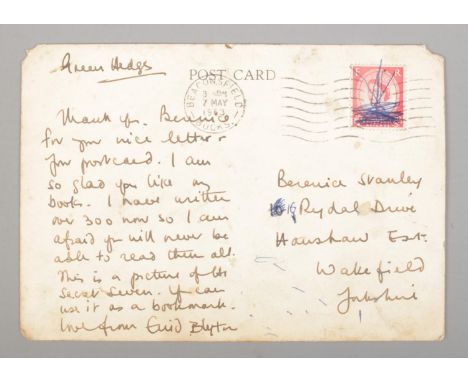 Green Hedges
POST CARD
BEACONSFIELD
7 MAY
1963
BUCKS.
Thank you, Berenice
for your nice letter &
your postcard. I am
so glad you like my
books. I have written
over 300 now so I am
afraid you will never be
able to read them all.
This is a picture of the
Secret Seven. You can
use it as a bookmark.
Love from Enid Blyton
Berenice Stanley
16 Rydal Drive
Hanshaw Est.
Wakefield
Yorkshire